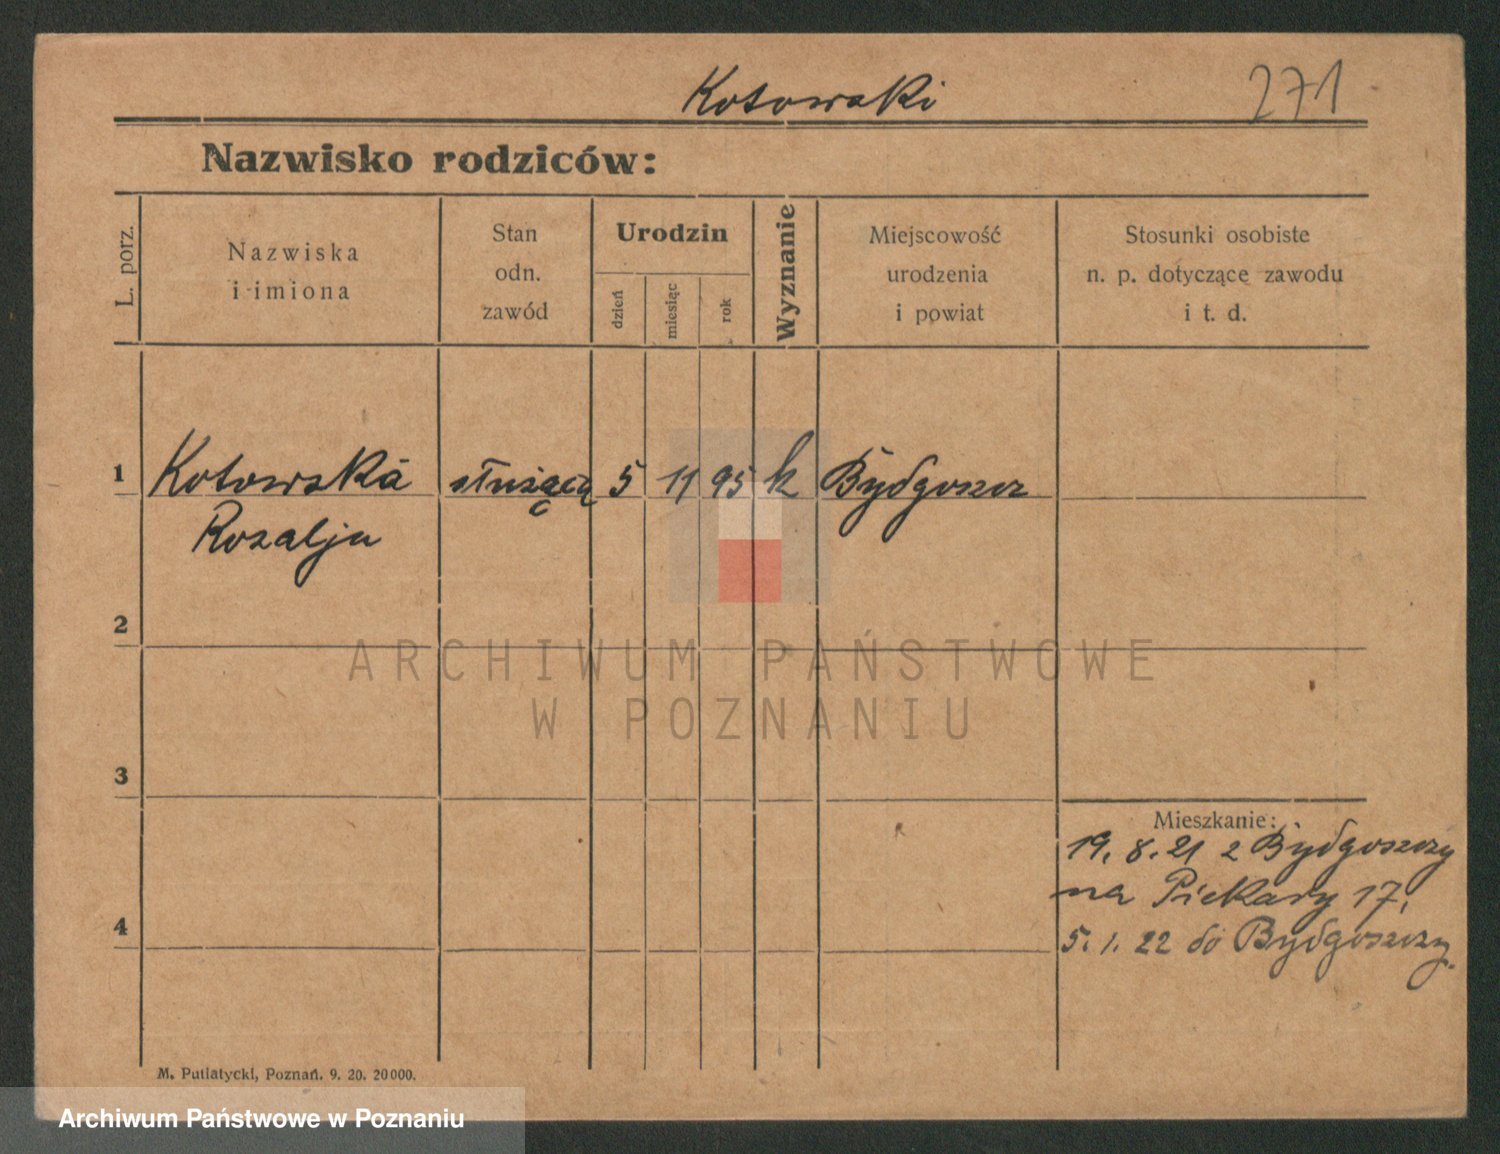 Kotowski 271
Nazwisko rodziców:
L. porz.
Nazwiska
i imiona
Stan
odn.
zawód
Urodzin
dzień
miesiąc
rok
Wyznanie
Miejscowość
urodzenia
i powiat
Stosunki osobiste
n. p. dotyczące zawodu
i t. d.
1 Kotowska służąca 5 11 95 k Bydgoszcz
Rozalja
2
ARCHIWUM PAŃSTWOWE
W POZNANIU
3
Mieszkanie:
19. 8. 21 z Bydgoszczy
na Piekary 17,
4
5. 1. 22 do Bydgoszczy.
M. Putiatycki, Poznań. 9. 20. 20000.
Archiwum Państwowe w Poznaniu